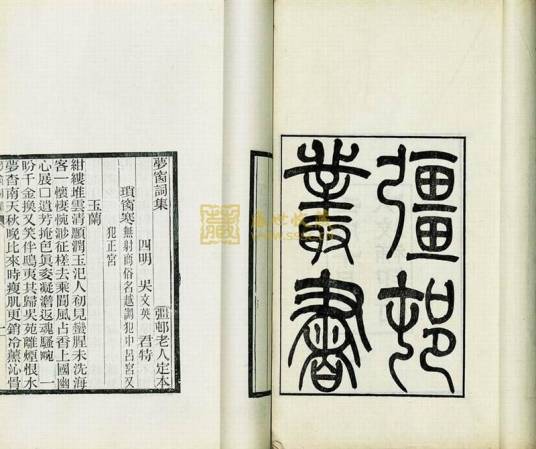 彊邨
叢書
夢窗詞集　彊邨老人定本
四明　吳文英　君特
瑣窗寒 無射商俗名越調犯中呂宮又
犯正宮
玉蘭
紺縷堆雲清顋潤玉汜人初見蠻腥未洗海
客一懷悽惋渺征槎去乘閬風占香上國幽
心展□遺芳掩色眞姿凝澹返魂騷畹　一
盼千金換又笑伴鴟夷共歸吳苑離煙恨水
夢杳南天秋晚比來時瘦肌更銷冷薰沁骨